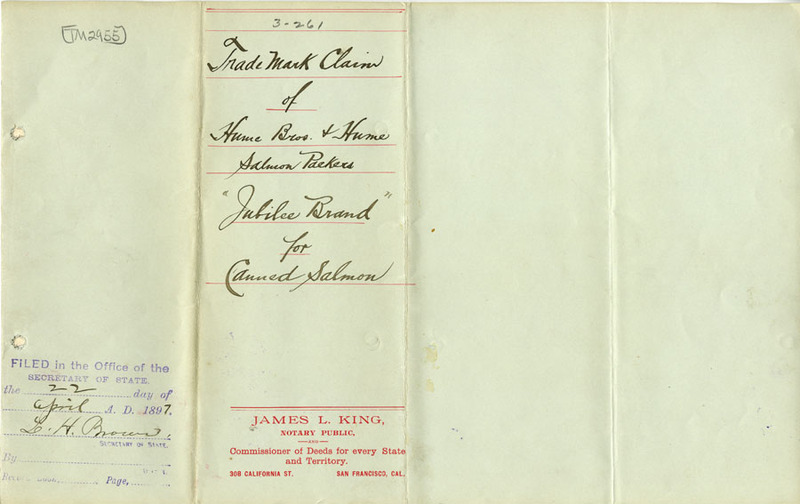 TM2955
3-261
Trade Mark Claim
of
Hume Bros. & Hume
Salmon Packers
"Jubilee Brand"
for
Canned Salmon
FILED in the Office of the
SECRETARY OF STATE.
the 22 day of
April A. D. 1897.
L. H. Brown,
SECRETARY OF STATE.
By
Page,
JAMES L. KING,
NOTARY PUBLIC,
AND
Commissioner of Deeds for every State
and Territory.
308 CALIFORNIA ST. SAN FRANCISCO, CAL.